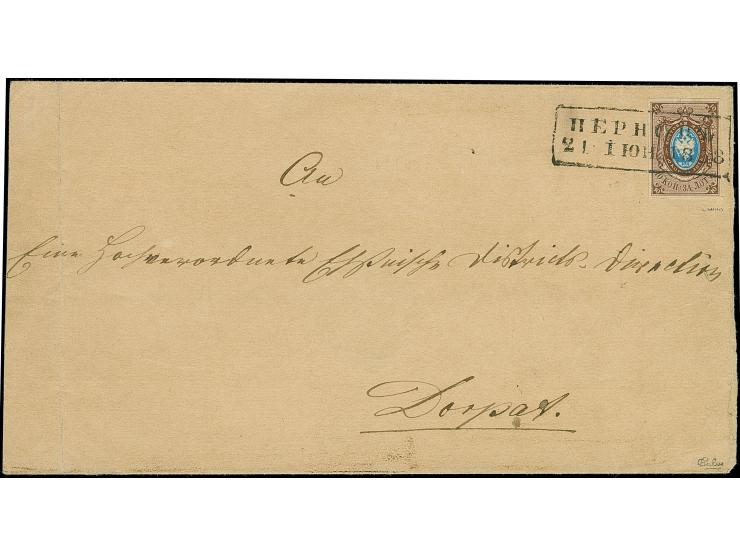 ПЕРНОВЪ
21 ІЮН 1858
10 КОП. ЗА ЛОТЪ
An
Eine Hochverordnete Ehstnische Districts-Direction
Dorpat.